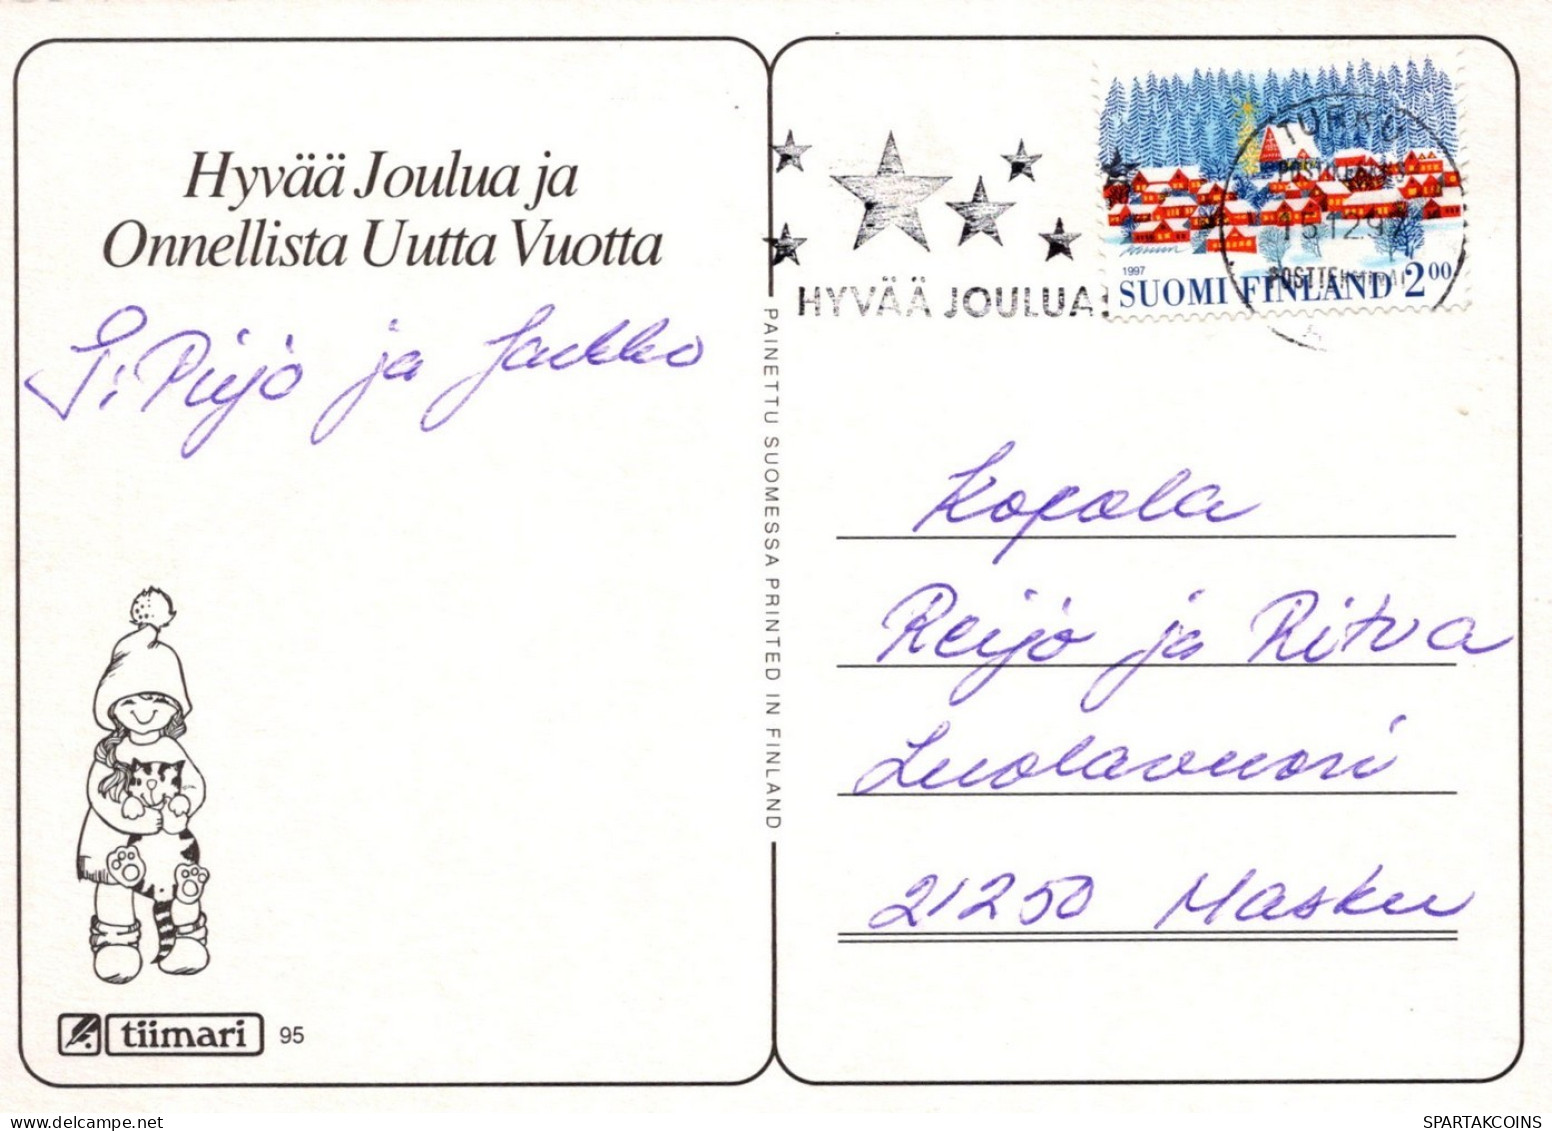 Hyvää Joulua ja
Onnellista Uutta Vuotta
T: Pirjo ja Jaakko
tiimari 95
PAINETTU SUOMESSA PRINTED IN FINLAND
HYVÄÄ JOULUA!
TURKU
15.12.97
1997
SUOMI FINLAND 2⁰⁰
Kopola
Reijo ja Ritva
Luolavuori
21250 Masku
SPARTAKCOINS